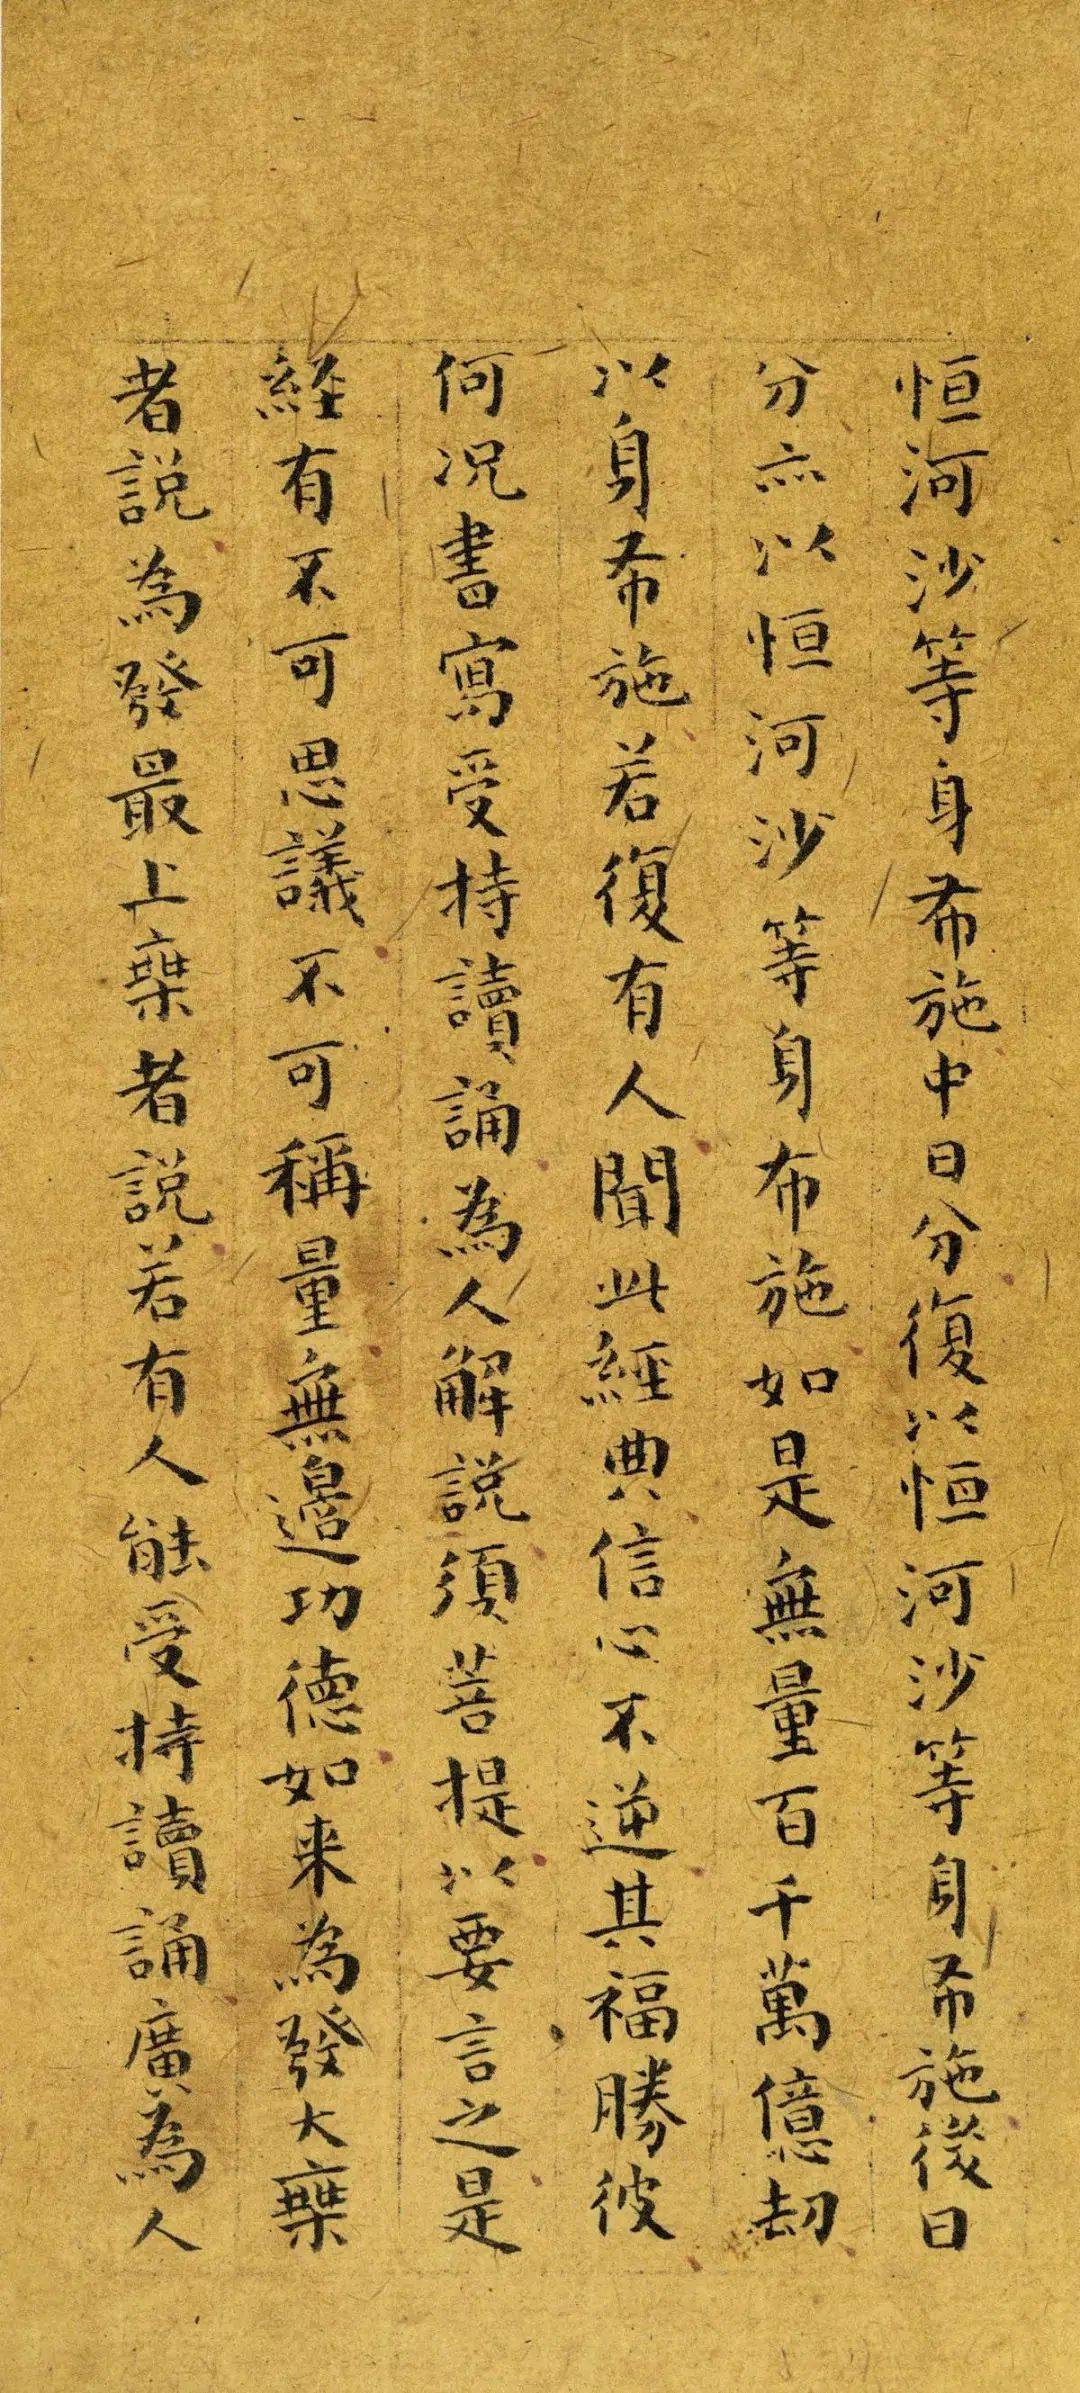 恒河沙等身布施中日分復以恒河沙等身布施後日
分亦以恒河沙等身布施如是無量百千萬億劫
以身布施若復有人聞此經典信心不逆其福勝彼
何况書寫受持讀誦為人解說須菩提以要言之是
經有不可思議不可稱量無邊功德如来為發大乗
者說為發最上乗者說若有人能受持讀誦廣為人